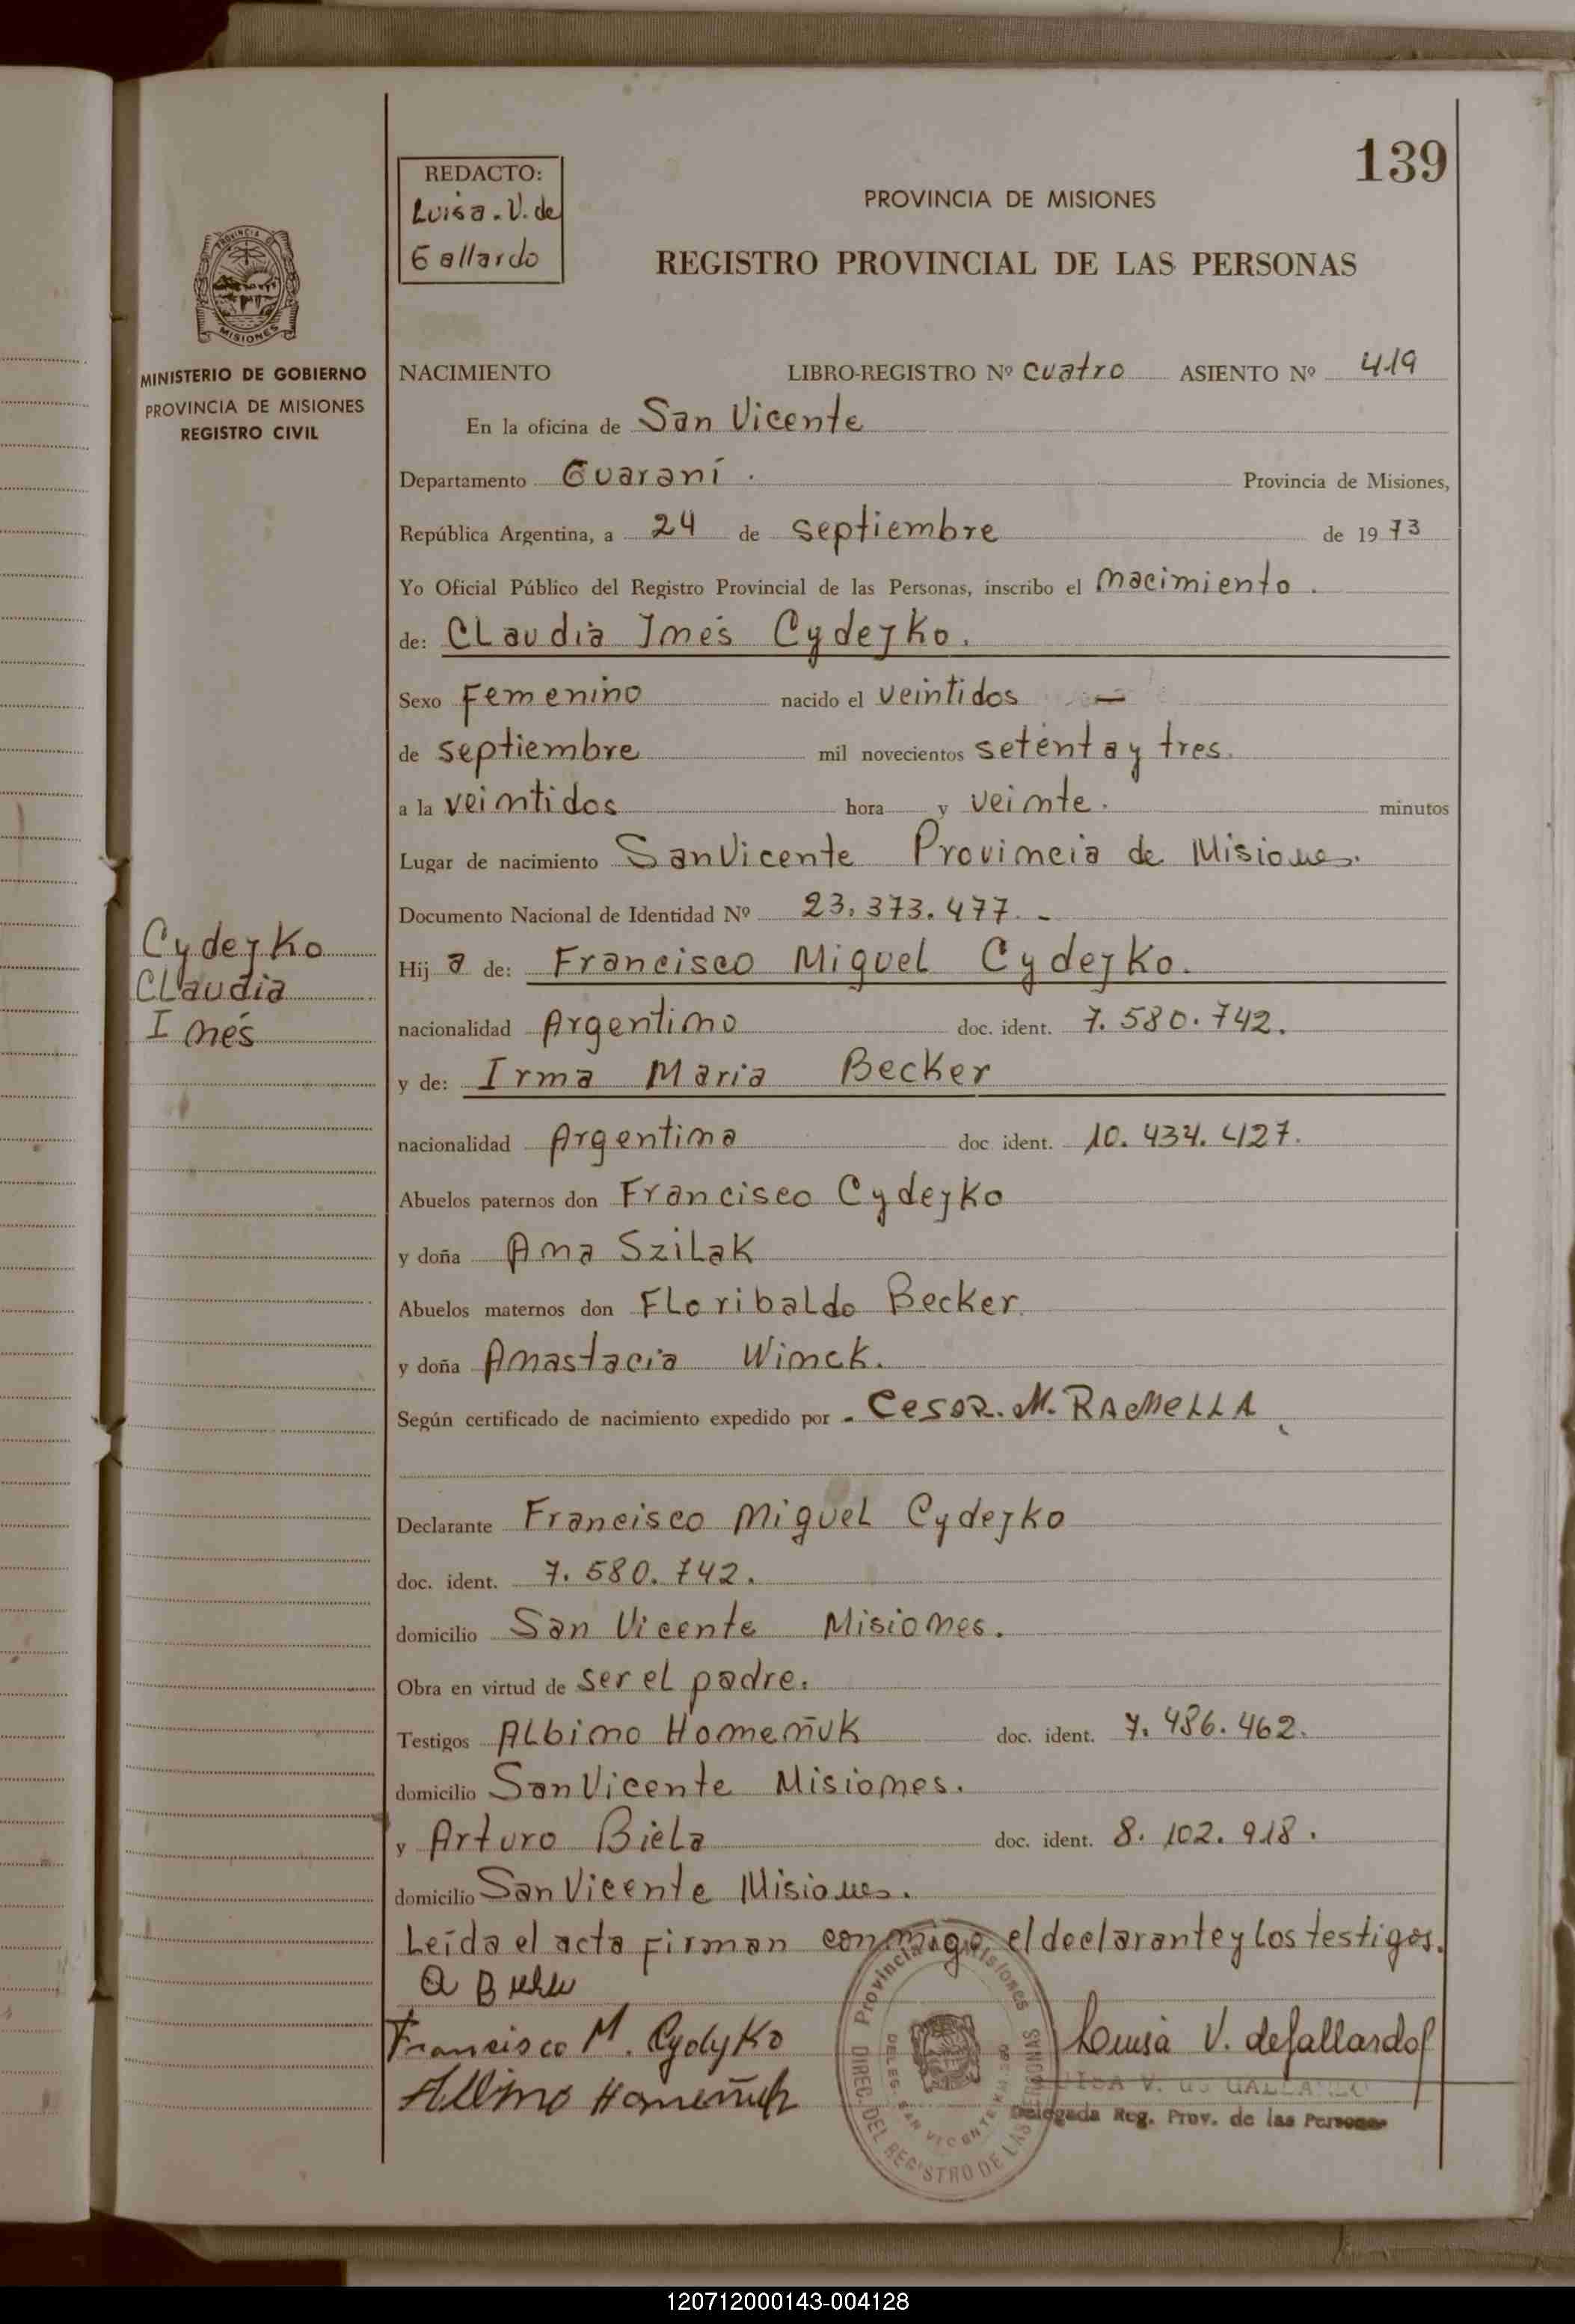 139
REDACTO:
Luisa. V. de
Gallardo
PROVINCIA DE MISIONES
REGISTRO PROVINCIAL DE LAS PERSONAS
PROVINCIA DE
MISIONES
MINISTERIO DE GOBIERNO
PROVINCIA DE MISIONES
REGISTRO CIVIL
NACIMIENTO LIBRO-REGISTRO Nº cuatro ASIENTO Nº 419
En la oficina de San Vicente
Departamento Guaraní. Provincia de Misiones,
República Argentina, a 24 de septiembre de 1973
Yo Oficial Público del Registro Provincial de las Personas, inscribo el nacimiento.
de: Claudia Inés Cydejko.
Sexo Femenino nacido el veintidos —
de septiembre mil novecientos setenta y tres.
a la veintidos hora y veinte. minutos
Lugar de nacimiento San Vicente Provincia de Misiones.
Documento Nacional de Identidad Nº 23.373.477. -
Cydejko
Claudia
Inés
Hij a de: Francisco Miguel Cydejko.
nacionalidad Argentino doc. ident. 7.580.742.
y de: Irma Maria Becker
nacionalidad Argentina doc. ident. 10.434.427.
Abuelos paternos don Francisco Cydejko
y doña Ana Szilak
Abuelos maternos don Floribaldo Becker.
y doña Anastacia Winck.
Según certificado de nacimiento expedido por - Cesar. M. RAMELLA
Declarante Francisco Miguel Cydejko
doc. ident. 7.580.742.
domicilio San Vicente Misiones.
Obra en virtud de ser el padre.
Testigos Albino Homeñuk doc. ident. 7.486.462.
domicilio San Vicente Misiones.
y Arturo Biela doc. ident. 8.102.918.
domicilio San Vicente Misiones.
Leída el acta firman conmigo el declarante y los testigos.
Francisco M. Cydyko
Albino Homeñuk
Luisa V. de Gallardo
Provincia de Misiones
DIREC. DEL REGISTRO DE LAS PERSONAS
DELEG. SAN VICENTE
Delegada Reg. Prov. de las Personas
120712000143-004128